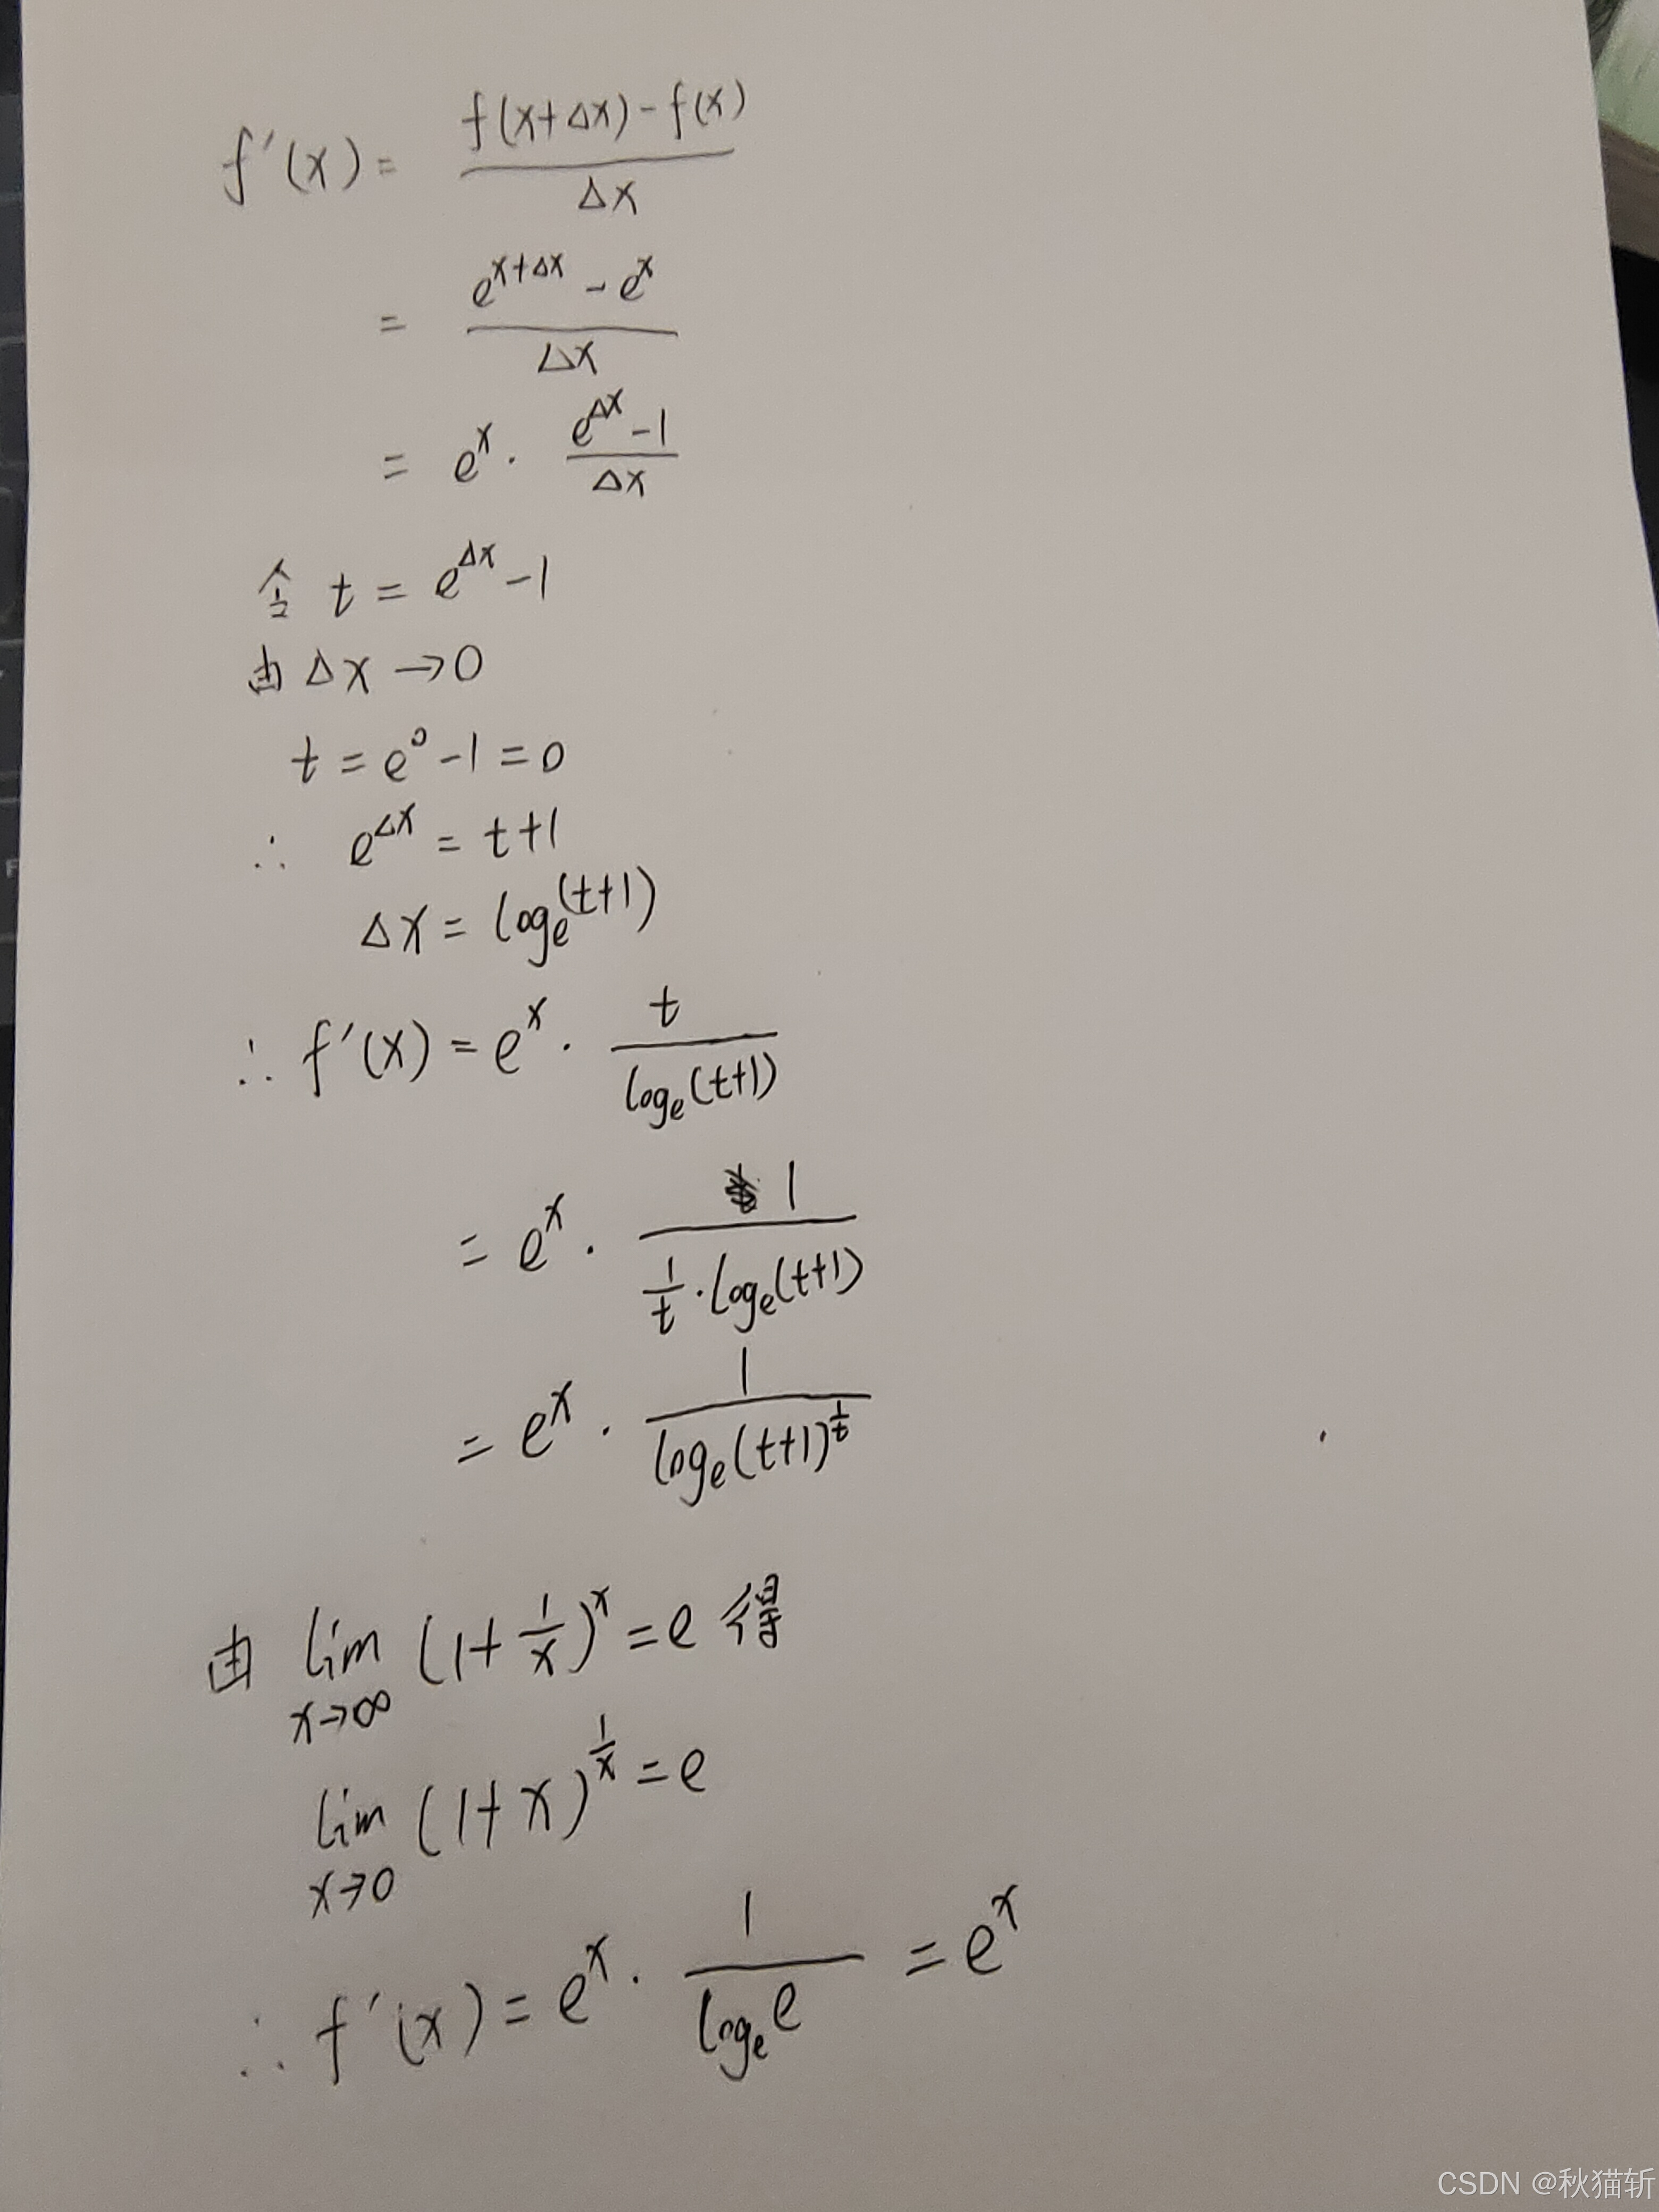 f'(x) = \frac{f(x+Δx)-f(x)}{Δx}
= \frac{e^{x+Δx} - e^x}{Δx}
= e^x · \frac{e^{Δx}-1}{Δx}
令 t = e^{Δx} -1
由 Δx → 0
t = e^0 -1 = 0
∴ e^{Δx} = t+1
Δx = log_e^{(t+1)}
∴ f'(x) = e^x · \frac{t}{log_e(t+1)}
= e^x · \frac{1}{\frac{1}{t}·log_e(t+1)}
= e^x · \frac{1}{log_e(t+1)^{\frac{1}{t}}}
由 lim_{x→∞} (1+\frac{1}{x})^x = e 得
lim_{x→0} (1+x)^{\frac{1}{x}} = e
∴ f'(x) = e^x · \frac{1}{log_e e} = e^x
CSDN @秋猫斩